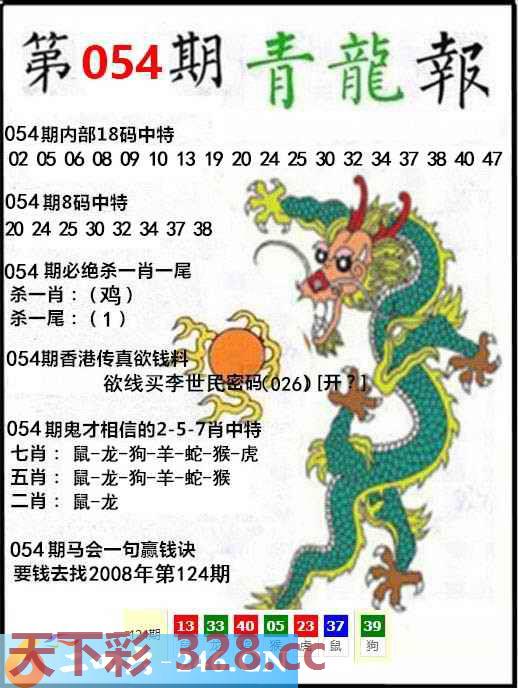 第054期青龍報
054期内部18码中特
02 05 06 08 09 10 13 19 20 24 25 30 32 34 37 38 40 47
054期8码中特
20 24 25 30 32 34 37 38
054 期必绝杀一肖一尾
杀一肖：（鸡）
杀一尾：（1）
054期香港传真欲钱料
欲线买李世民密码(026) [开？]
054期鬼才相信的2-5-7肖中特
七肖：鼠-龙-狗-羊-蛇-猴-虎
五肖：鼠-龙-狗-蛇-猴
二肖：鼠-龙
054期马会一句赢钱诀
要钱去找2008年第124期
124期 13 33 40 05 23 37 39
龙 猴 虎 鼠 狗
天下彩-328.cc